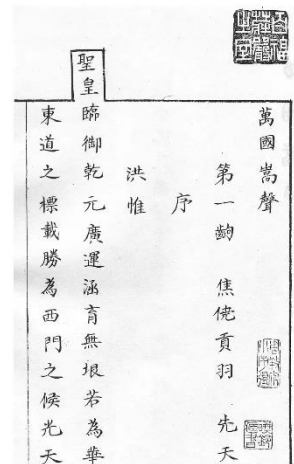 萬國嵩聲
第一齣　焦僥貢羽　先天
序
洪惟
聖皇臨御乾元廣運涵育無垠若為華
東道之標載勝為西門之候光天